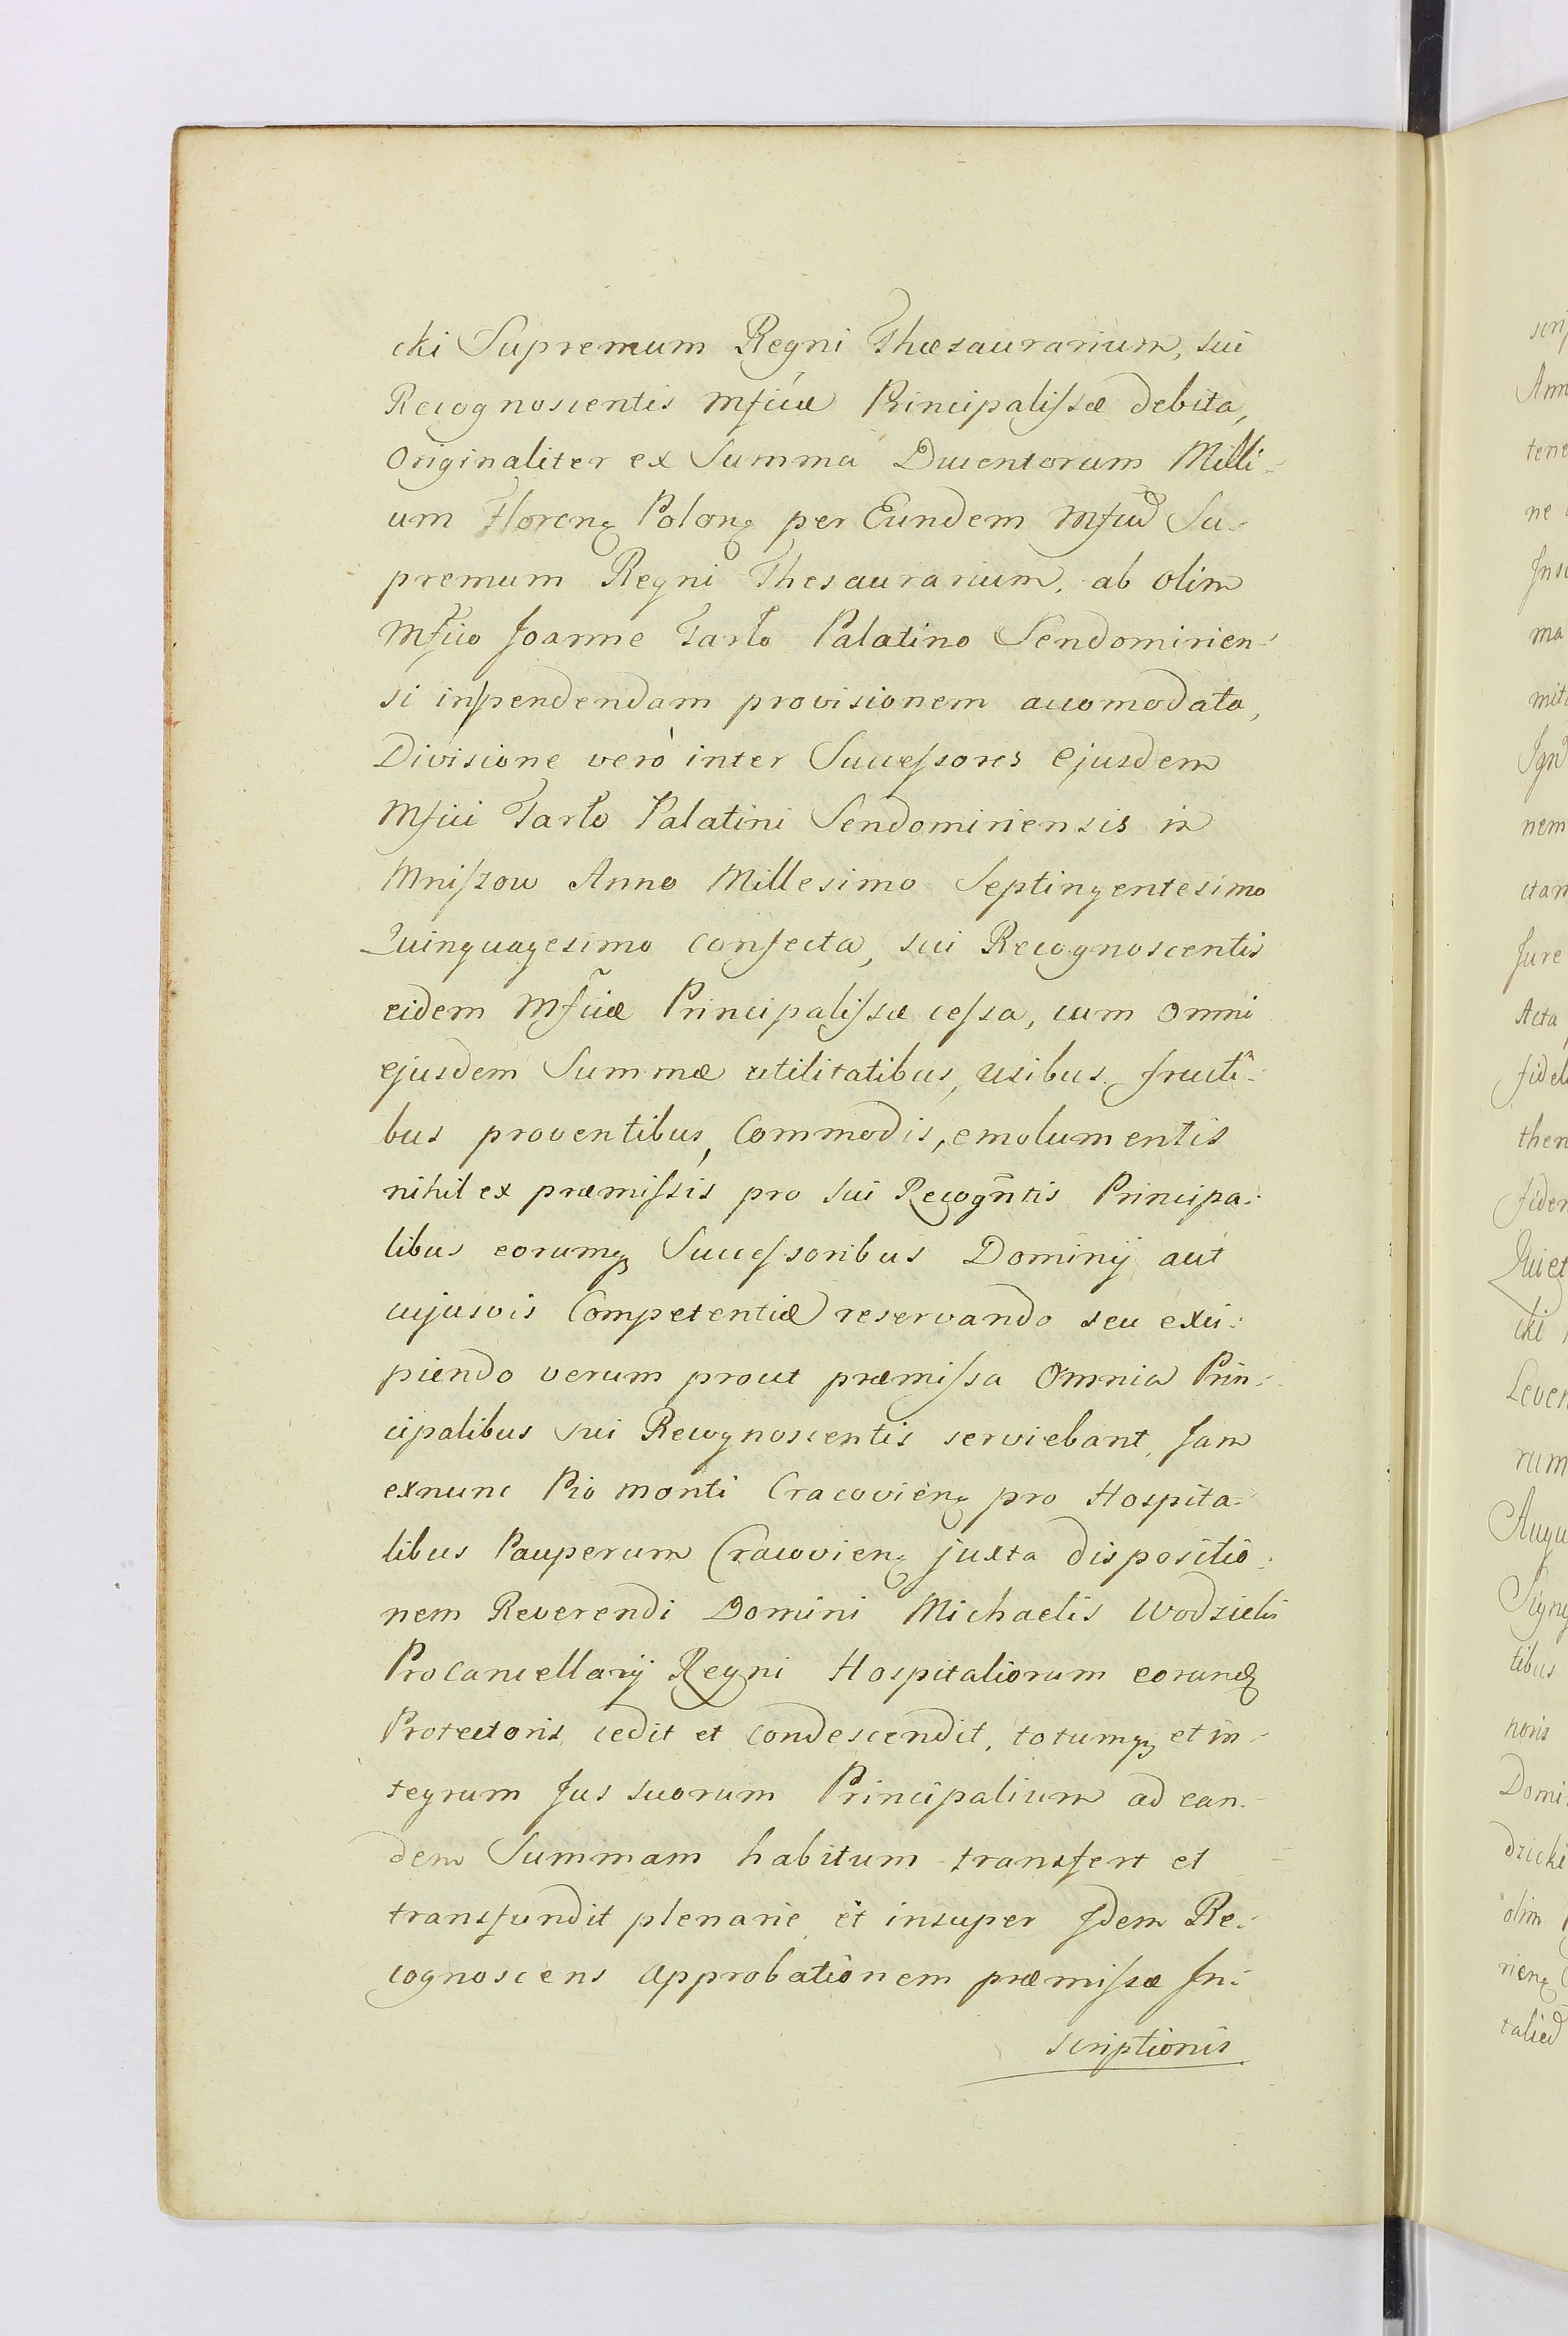 cki Supremum Regni Thæsaurarium, sui
Recognoscentis Mficæ Principalissæ debita,
Originaliter ex Summa Ducentorum Milli-
um Florenꝫ Polonꝫ per Eundem Mficũ Su-
premum Regni Thesaurarium, ab olim
Mfico Joanne Tarło Palatino Sendomirien-
si inspendendam provisionem accomodata,
Divisione verò inter Successores Ejusdem
Mfici Tarło Palatini Sendomiriensis in
Mniszow Anno Millesimo Septingentesimo
Quinquagesimo confecta, sui Recognoscentis
eidem Mficæ Principalissæ cessa, cum omni
ejusdem Summæ utilitatibus, usibus fructi-
bus proventibus, Commodis, emolumentis
nihil ex præmissis pro sui Recogñtis Principa-
libus eorumqꝫ Successoribus Dominij aut
cujusvis Competentiæ reservando seu exci-
piendo verum prout præmissa Omnia Prin-
cipalibus sui Recognoscentis serviebant, Jam
exnunc Pio monti Cracovienꝫ pro Hospita-
libus Pauperum Cracovienꝫ juxta dispositio-
nem Reverendi Domini Michaelis Wodzicki
ProCancellarij Regni Hospitaliorum eorundꝫ
Protectoris, cedit et condescendit, totumqꝫ et in-
tegrum Jus suorum Principalium ad ean-
dem Summam habitum transfert et
transfundit plenarie, et insuper Idem Re-
cognoscens Approbationem præmissæ In-
scriptionis
Ann
tene
ne
ma
nem
Jure
Acta
fidel
Quiet
cki
Lever
rum
Augu
tibus
noris
Domi
dzicki
olim
rienꝫ